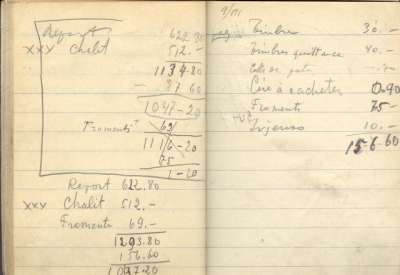 Report 622.80
xxx Chalit 512.-
1134.80
- 87 60
1047-20
"Froments" 69/
1116-20
75
1-20
Report 622.80
xxx Chalit 512.-
Froments 69.-
1203.80
156.60
1047.20
9/VII
Timbres 30.-
Timbres quittance 40.-
Cire à cacheter 0.90
Froments 75-
10.-
156.60